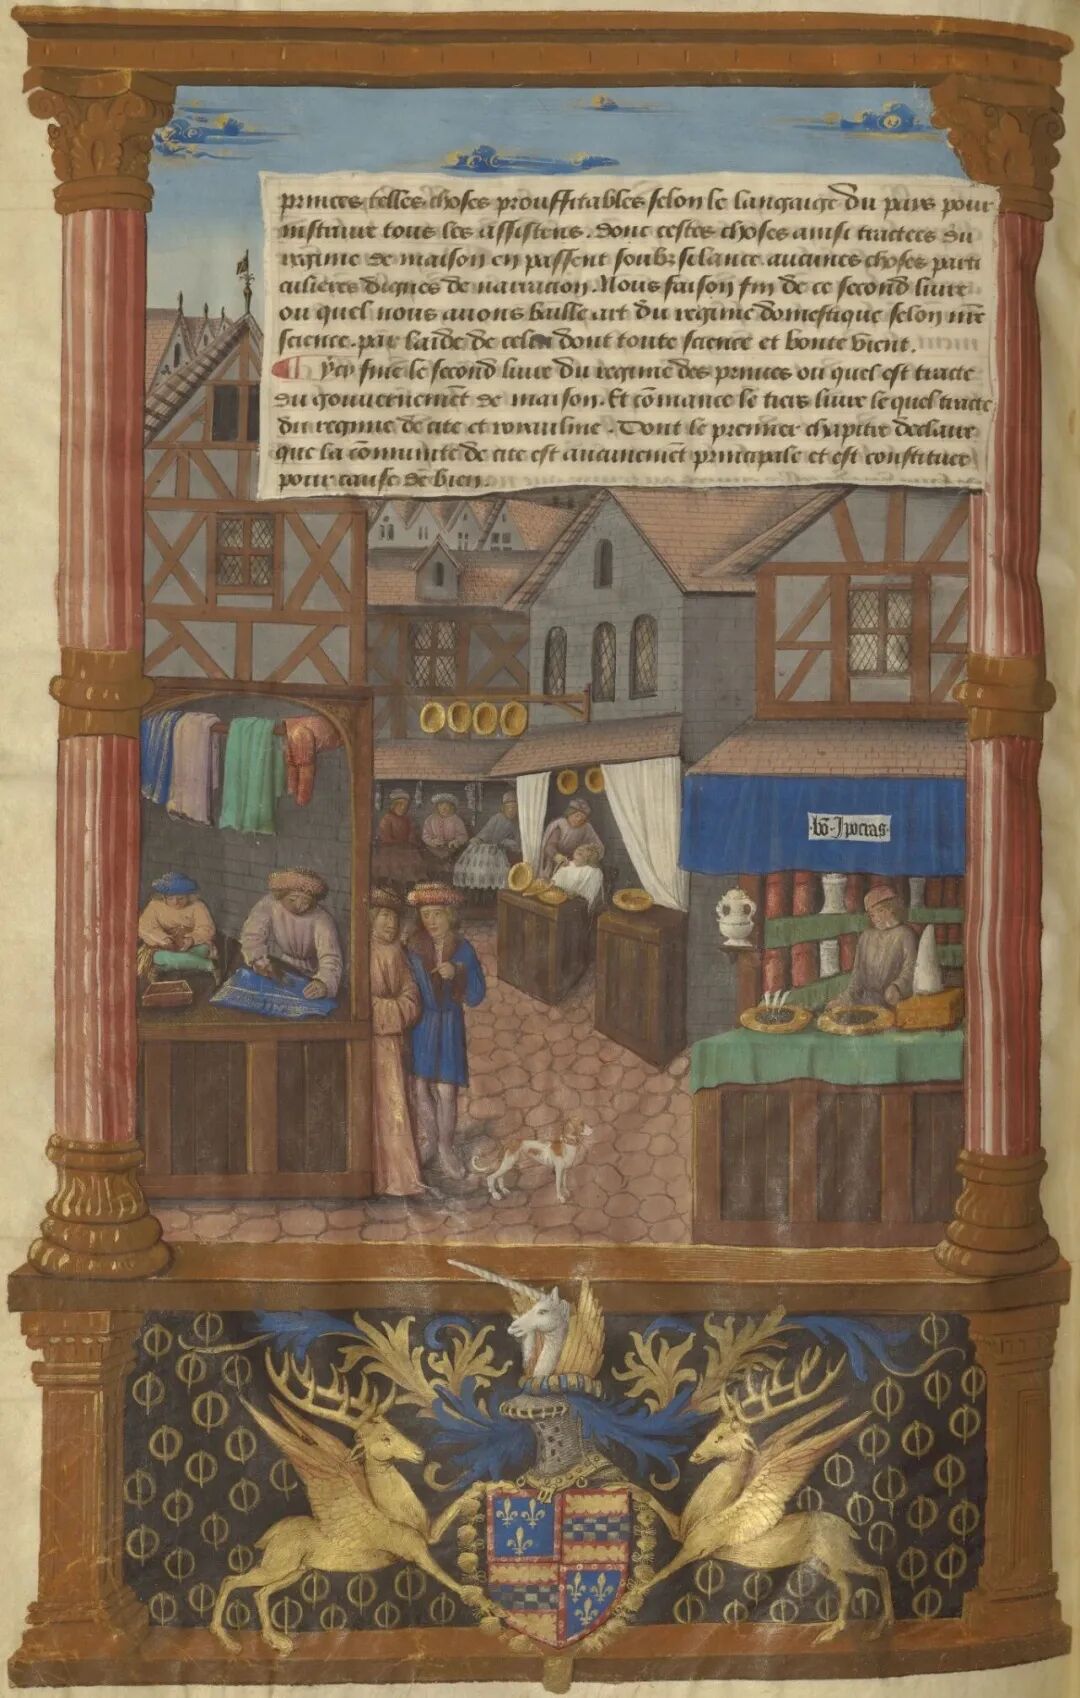 princes telles choses prouffitables selon le langaige du pays pour
instruire tous les assistens. Donc cestes choses ainsi tractees du
regime de maison en passent soubz silance aucunes choses parti
culieres dignes de narracion. Nous faison fin de ce second livre
ou quel nous avons baille art du regime domestique selon nre
science. par laide de celui dont toute science et bonte vient.
Ycy fine le second livre du regime des princes ou quel est tracte
du gouvernemēt de maison. Et cōmance le tiers livre le quel tracte
du regime de cite et royaulme. Dont le premier chapitre declaire
que la cōmunite de cite est aucunemēt principale et est constituee
pour cause de bien.
bō Ipocras